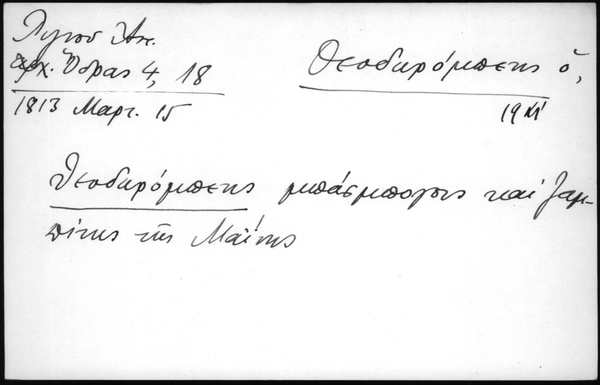 Λιγνοῦ Ἀντ.
Ἀρχ. Ὕδρας 4, 18
1813 Μαρτ. 15
Θεοδωρόμπεης ὁ,
19 αἰ
Θεοδωρόμπεης μπάσμπογης καὶ ζαμ-
πίτης τῆς Μαΐνης